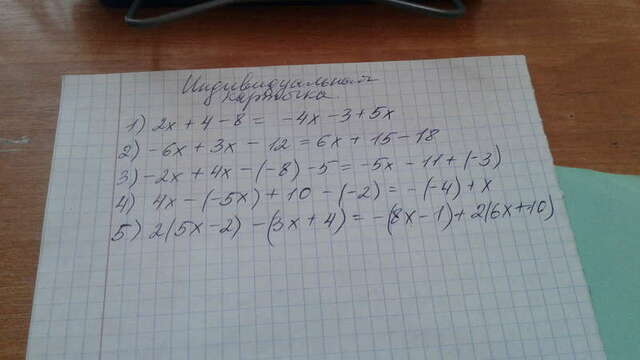 Индивидуальный
карточка.
1) 2x + 4 - 8 = -4x - 3 + 5x
2) -6x + 3x - 12 = 6x + 15 - 18
3) -2x + 4x - (-8) - 5 = -5x - 11 + (-3)
4) 4x - (-5x) + 10 - (-2) = -(-4) + x
5) 2(5x - 2) - (3x + 4) = -(8x - 1) + 2(6x + 10)